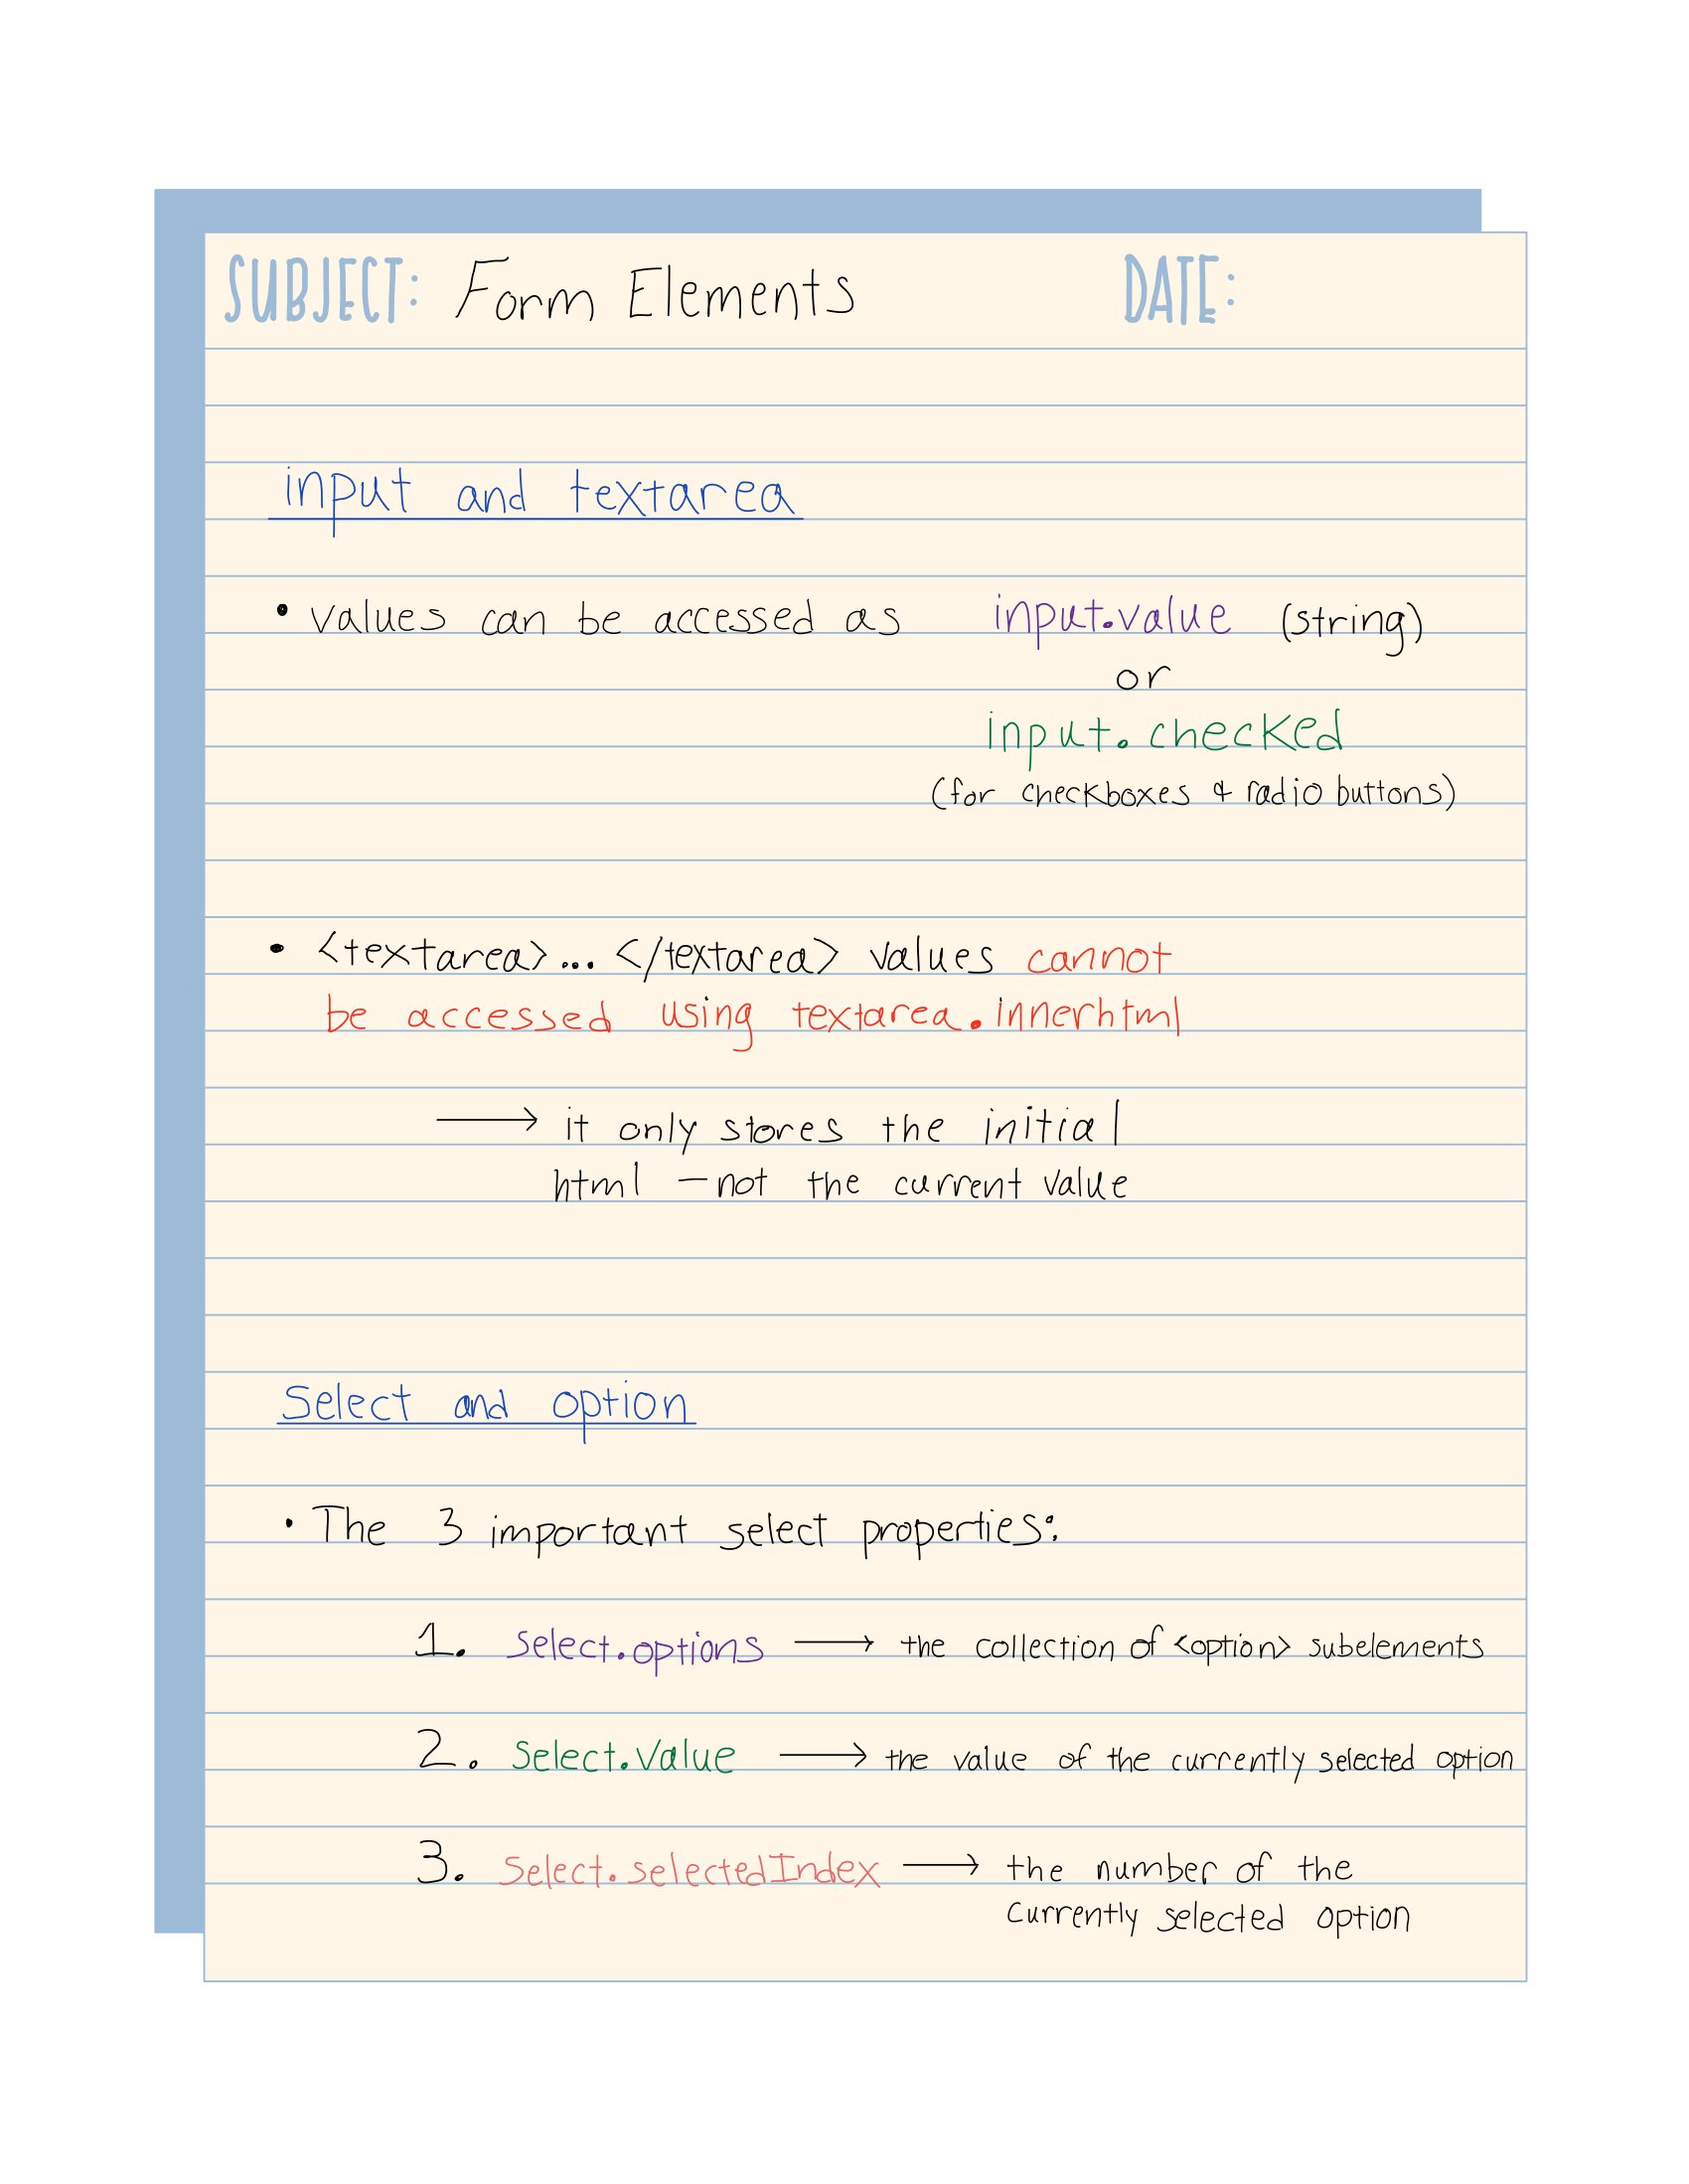 SUBJECT: Form Elements DATE:
input and textarea
• values can be accessed as input.value (string)
or
input.checked
(for checkboxes & radio buttons)
• <textarea>... </textarea> values cannot
be accessed using textarea.innerhtml
→ it only stores the initial
html – not the current value
Select and option
• The 3 important select properties:
1. select.options → the collection of <option> subelements
2. select.value → the value of the currently selected option
3. select.selectedIndex → the number of the
currently selected option